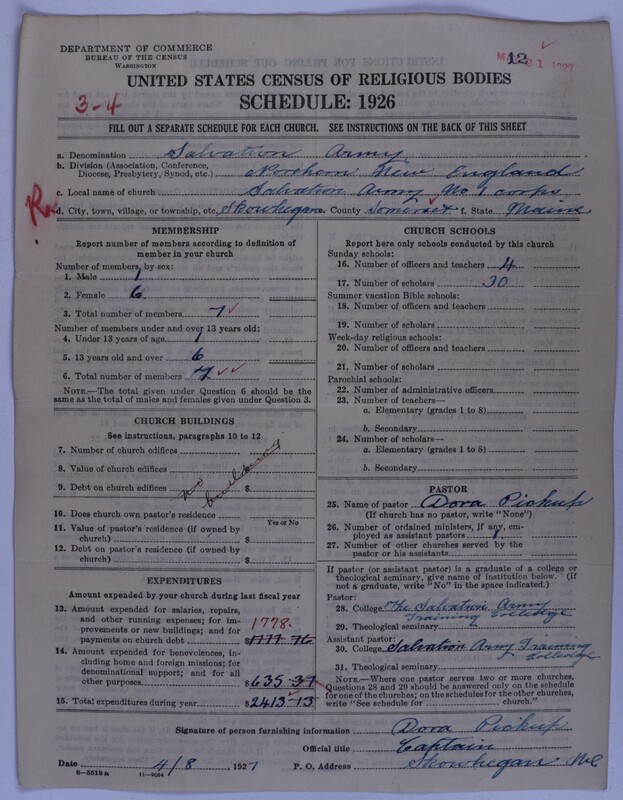 DEPARTMENT OF COMMERCE
BUREAU OF THE CENSUS
WASHINGTON
12
UNITED STATES CENSUS OF RELIGIOUS BODIES
3-4
SCHEDULE: 1926
FILL OUT A SEPARATE SCHEDULE FOR EACH CHURCH. SEE INSTRUCTIONS ON THE BACK OF THIS SHEET
a. Denomination Salvation Army
b. Division (Association, Conference, Diocese, Presbytery, Synod, etc.) Northern New England
c. Local name of church Salvation Army No 1 corps
d. City, town, village, or township, etc. Skowhegan e. County Somerset f. State Maine
MEMBERSHIP
Report number of members according to definition of
member in your church
Number of members, by sex:
1. Male 1
2. Female 6
3. Total number of members 7
Number of members under and over 13 years old:
4. Under 13 years of age 1
5. 13 years old and over 6
6. Total number of members 7
NOTE.—The total given under Question 6 should be
the same as the total of males and females given under Question 3.
CHURCH BUILDINGS
See instructions, paragraphs 10 to 12
7. Number of church edifices
8. Value of church edifices $
9. Debt on church edifices $
no building
10. Does church own pastor's residence
Yes or No
11. Value of pastor's residence (if owned by
church) $
12. Debt on pastor's residence (if owned by
church) $
EXPENDITURES
Amount expended by your church during last fiscal year
13. Amount expended for salaries, repairs,
and other running expenses; for im-
provements or new buildings; and for
payments on church debt $1777 76
1778.
14. Amount expended for benevolences, in-
cluding home and foreign missions; for
denominational support; and for all
other purposes $635-37
15. Total expenditures during year $2413-13
CHURCH SCHOOLS
Report here only schools conducted by this church
Sunday schools:
16. Number of officers and teachers 4
17. Number of scholars 30
Summer vacation Bible schools:
18. Number of officers and teachers
19. Number of scholars
Week-day religious schools:
20. Number of officers and teachers
21. Number of scholars
Parochial schools:
22. Number of administrative officers
23. Number of teachers—
a. Elementary (grades 1 to 8)
b. Secondary
24. Number of scholars—
a. Elementary (grades 1 to 8)
b. Secondary
PASTOR
25. Name of pastor Dora Pickup
(If church has no pastor, write "None")
26. Number of ordained ministers, if any, em-
ployed as assistant pastors 1
27. Number of other churches served by the
pastor or his assistants
If pastor (or assistant pastor) is a graduate of a college or
theological seminary, give name of institution below. (If
not a graduate, write "No" in the space indicated.)
Pastor:
28. College The Salvation Army
Training Colledge
29. Theological seminary
Assistant pastor:
30. College Salvation Army Training
Colledge
31. Theological seminary
NOTE.—Where one pastor serves two or more churches,
Questions 28 and 29 should be answered only on the schedule
for one of the churches; on the schedules for the other churches,
write "See schedule for church."
Signature of person furnishing information Dora Pickup
Official title Captain
Date 4/8 1927 P. O. Address Skowhegan Me
8—5519 A 11—9064